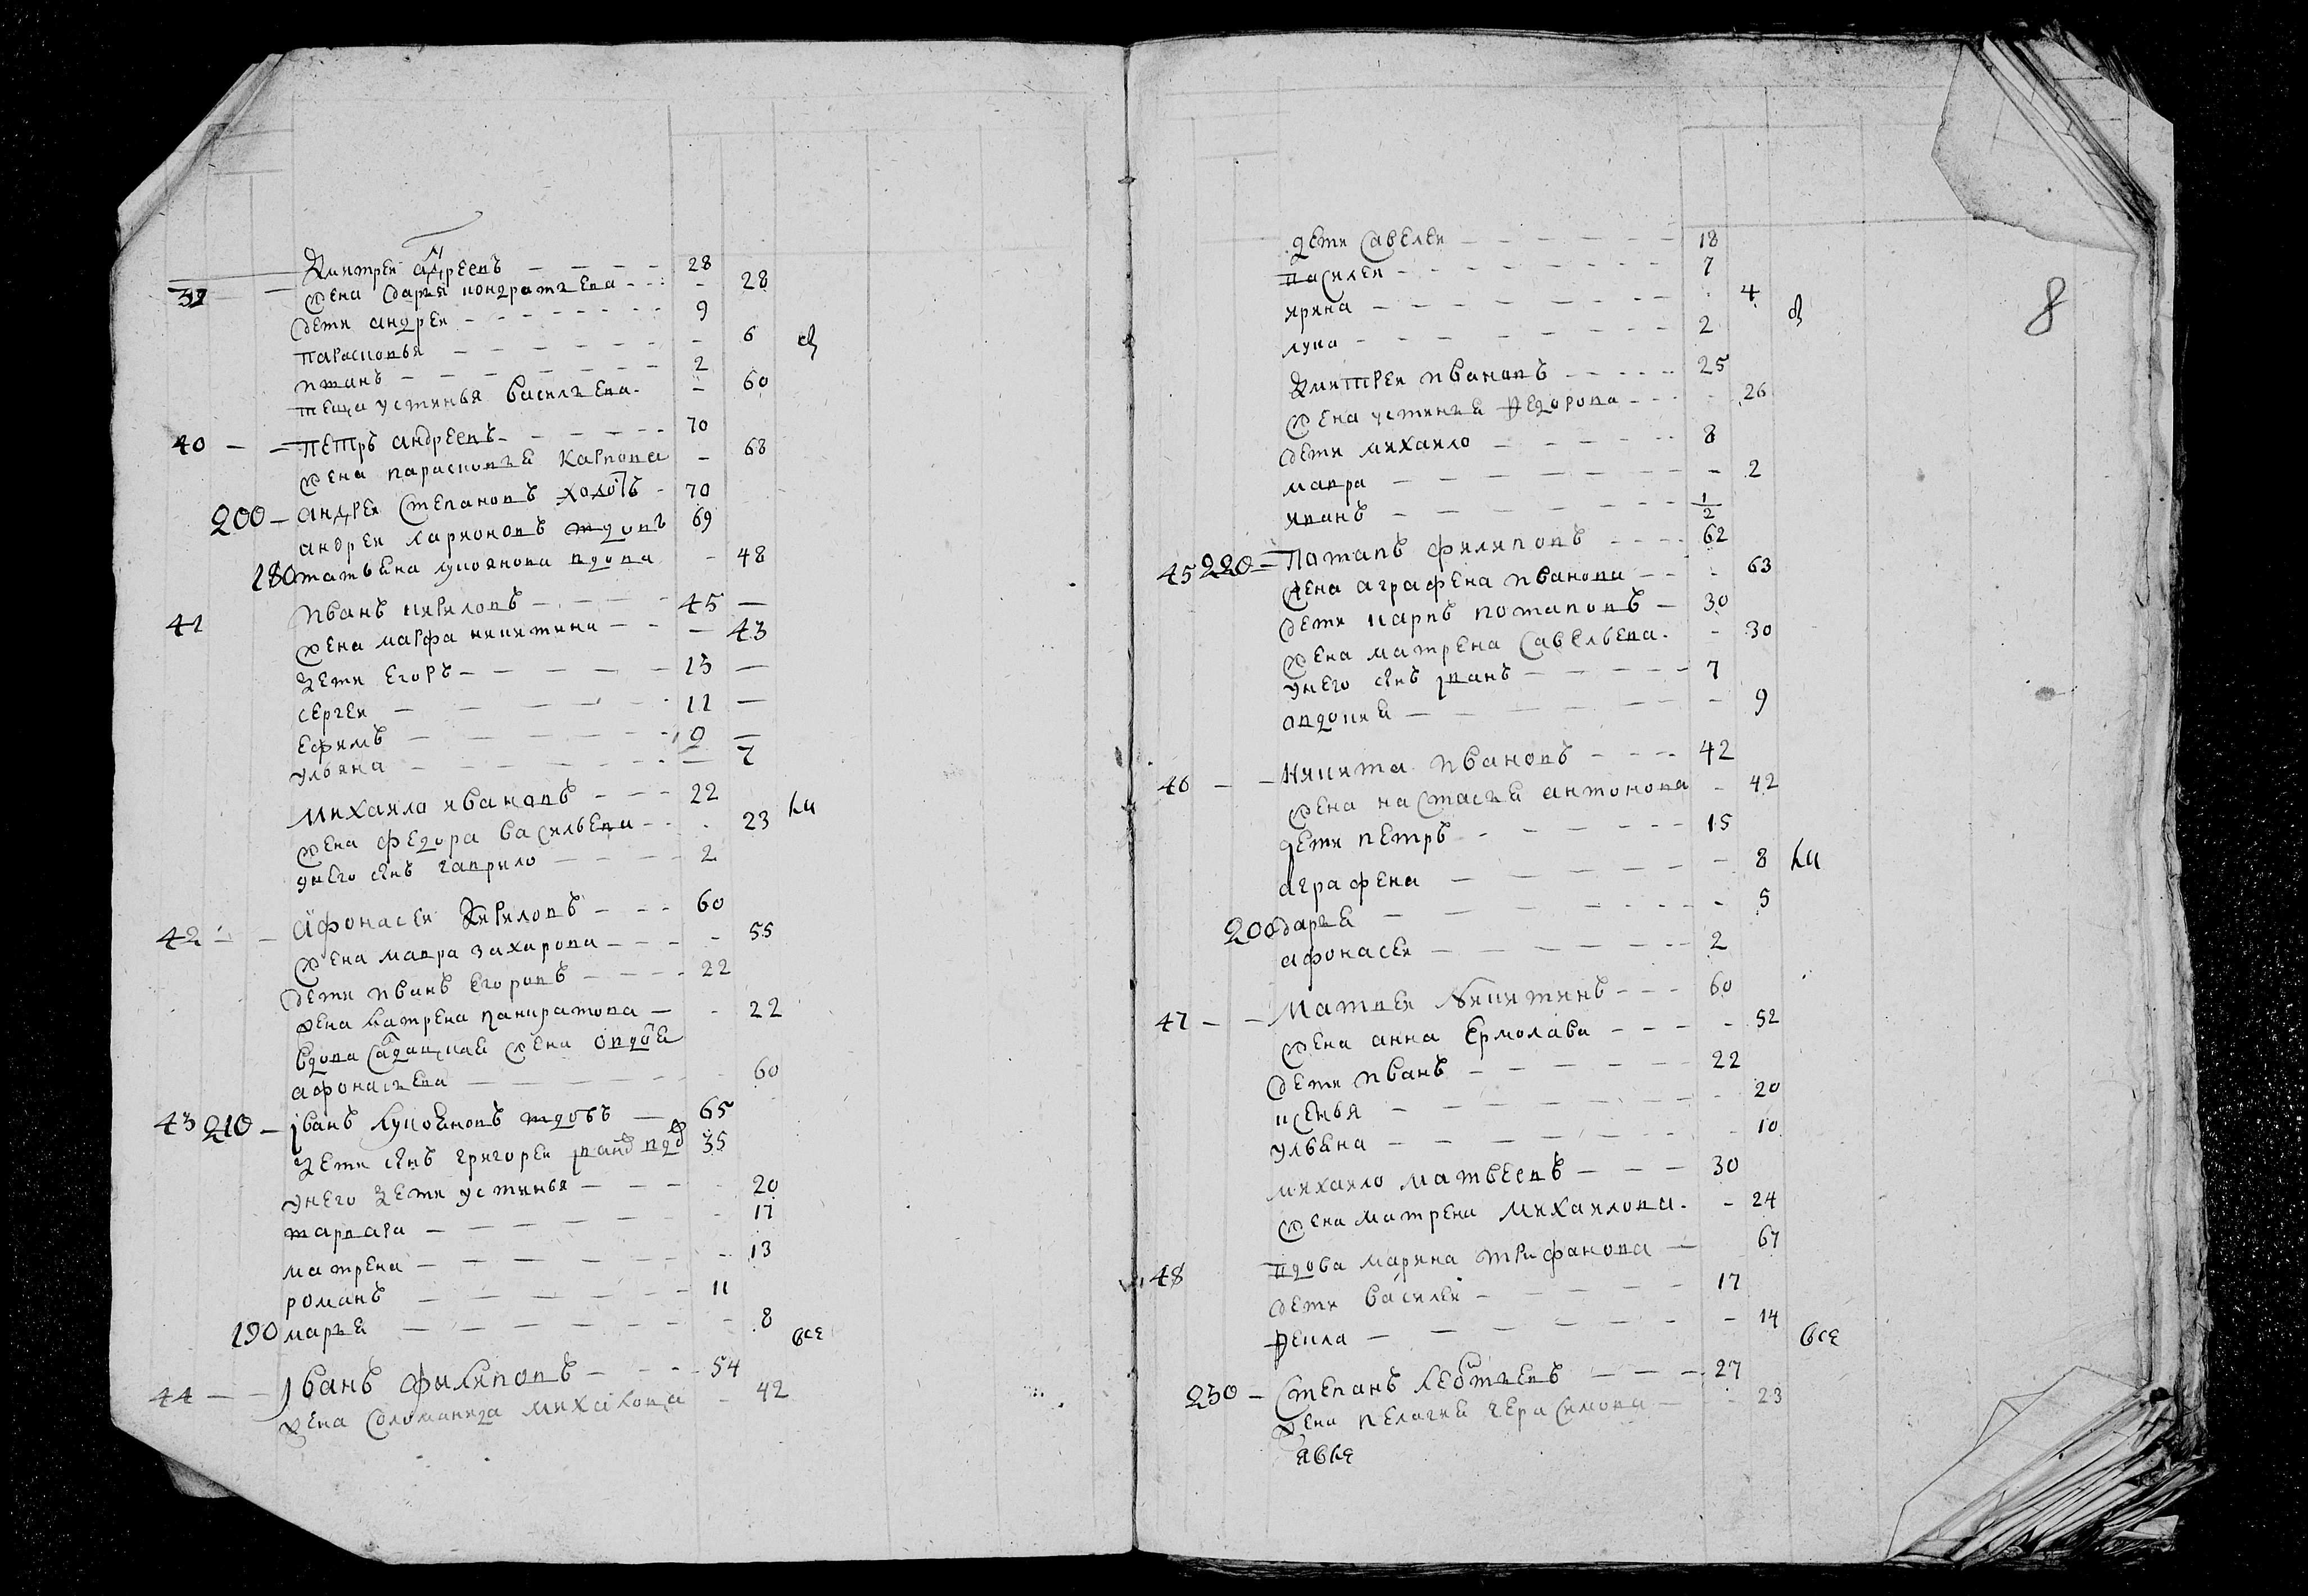 Дмитреи андреевъ - - - - 28
39 - жена дарья кондратьева - - - 28
дети андреи - - - - - - - 9
парасковья - - - - - - - 6
иванъ - - - - - - - 2
теща устинья василъева - - 60
40 - - петръ андреевъ - - - - - 70
жена парасковъя карпова - 68
200 - андреи степановъ холостъ - 70
андреи ларионовъ вдовъ 69
180 татьяна лукоянова вдова - 48
41 иванъ кириловъ - - - - 45 —
жена марфа никитина - - - 43
дети егоръ - - - - - 13 —
сергеи - - - - - 11 —
ефимъ - - - - - 9 —
ульяна - - - - - — 7
михаило ивановъ - - - 22
жена федора васильева - - 23
унего сынъ гаврило - - - - 2
42 - - афонасеи кириловъ - - - 60
жена мавра захарова - - - - 55
дети иванъ егоровъ - - - - 22
жена матрена панкратова - - 22
вдова салдацкая жена авдотья
афонасъева - - - - - - - 60
43 210 - Iванъ лукояновъ вдовъ — 65
дети сынъ григореи iвановъ вдовъ 35
унего дети устинья - - - - 20
варвара - - - - - - 17
матрена - - - - - - 13
романъ - - - - - - 11
190 маръя - - - - - - 8
все
44 - - Iванъ филиповъ - - - - 54
жена соломанида михаилова - 42
дети савелеи - - - - - - 18
василеи - - - - - - - 7
ирина - - - - - - - 4
8
лука - - - - - - - 2
Дмитреи ивановъ - - - - - 25
жена устинъя федорова - - - - 26
дети михаило - - - - - 8
мавра - - - - - - - 2
иванъ - - - - - - 1/2
45 220 - Потапъ филиповъ - - - - 62
жена аграфена иванова - - - 63
дети карпъ потаповъ - 30
жена матрена савельева - - 30
унего сынъ iванъ - - - - - 7
авдотия - - - - - - - 9
46 - - Никита ивановъ - - - - 42
жена настасъя антонова - 42
дети петръ - - - - - - 15
аграфена - - - - - - 8
200 даръя - - - - - - 5
афонасеи - - - - - - 2
47 - - Матвеи никитинъ - - - 60
жена анна ермолава - - - - 52
дети иванъ - - - - - - 22
ксенья - - - - - - - 20
ульяна - - - - - - - 10
михаило матвеевъ - - - 30
жена матрена михаилова - - 24
48 вдова марина трифанова — 67
дети василеи - - - - - 17
фекла - - - - - - - 14
все
230 - Степанъ леонтьевъ - - - 27
жена пелагия герасимова - - 23